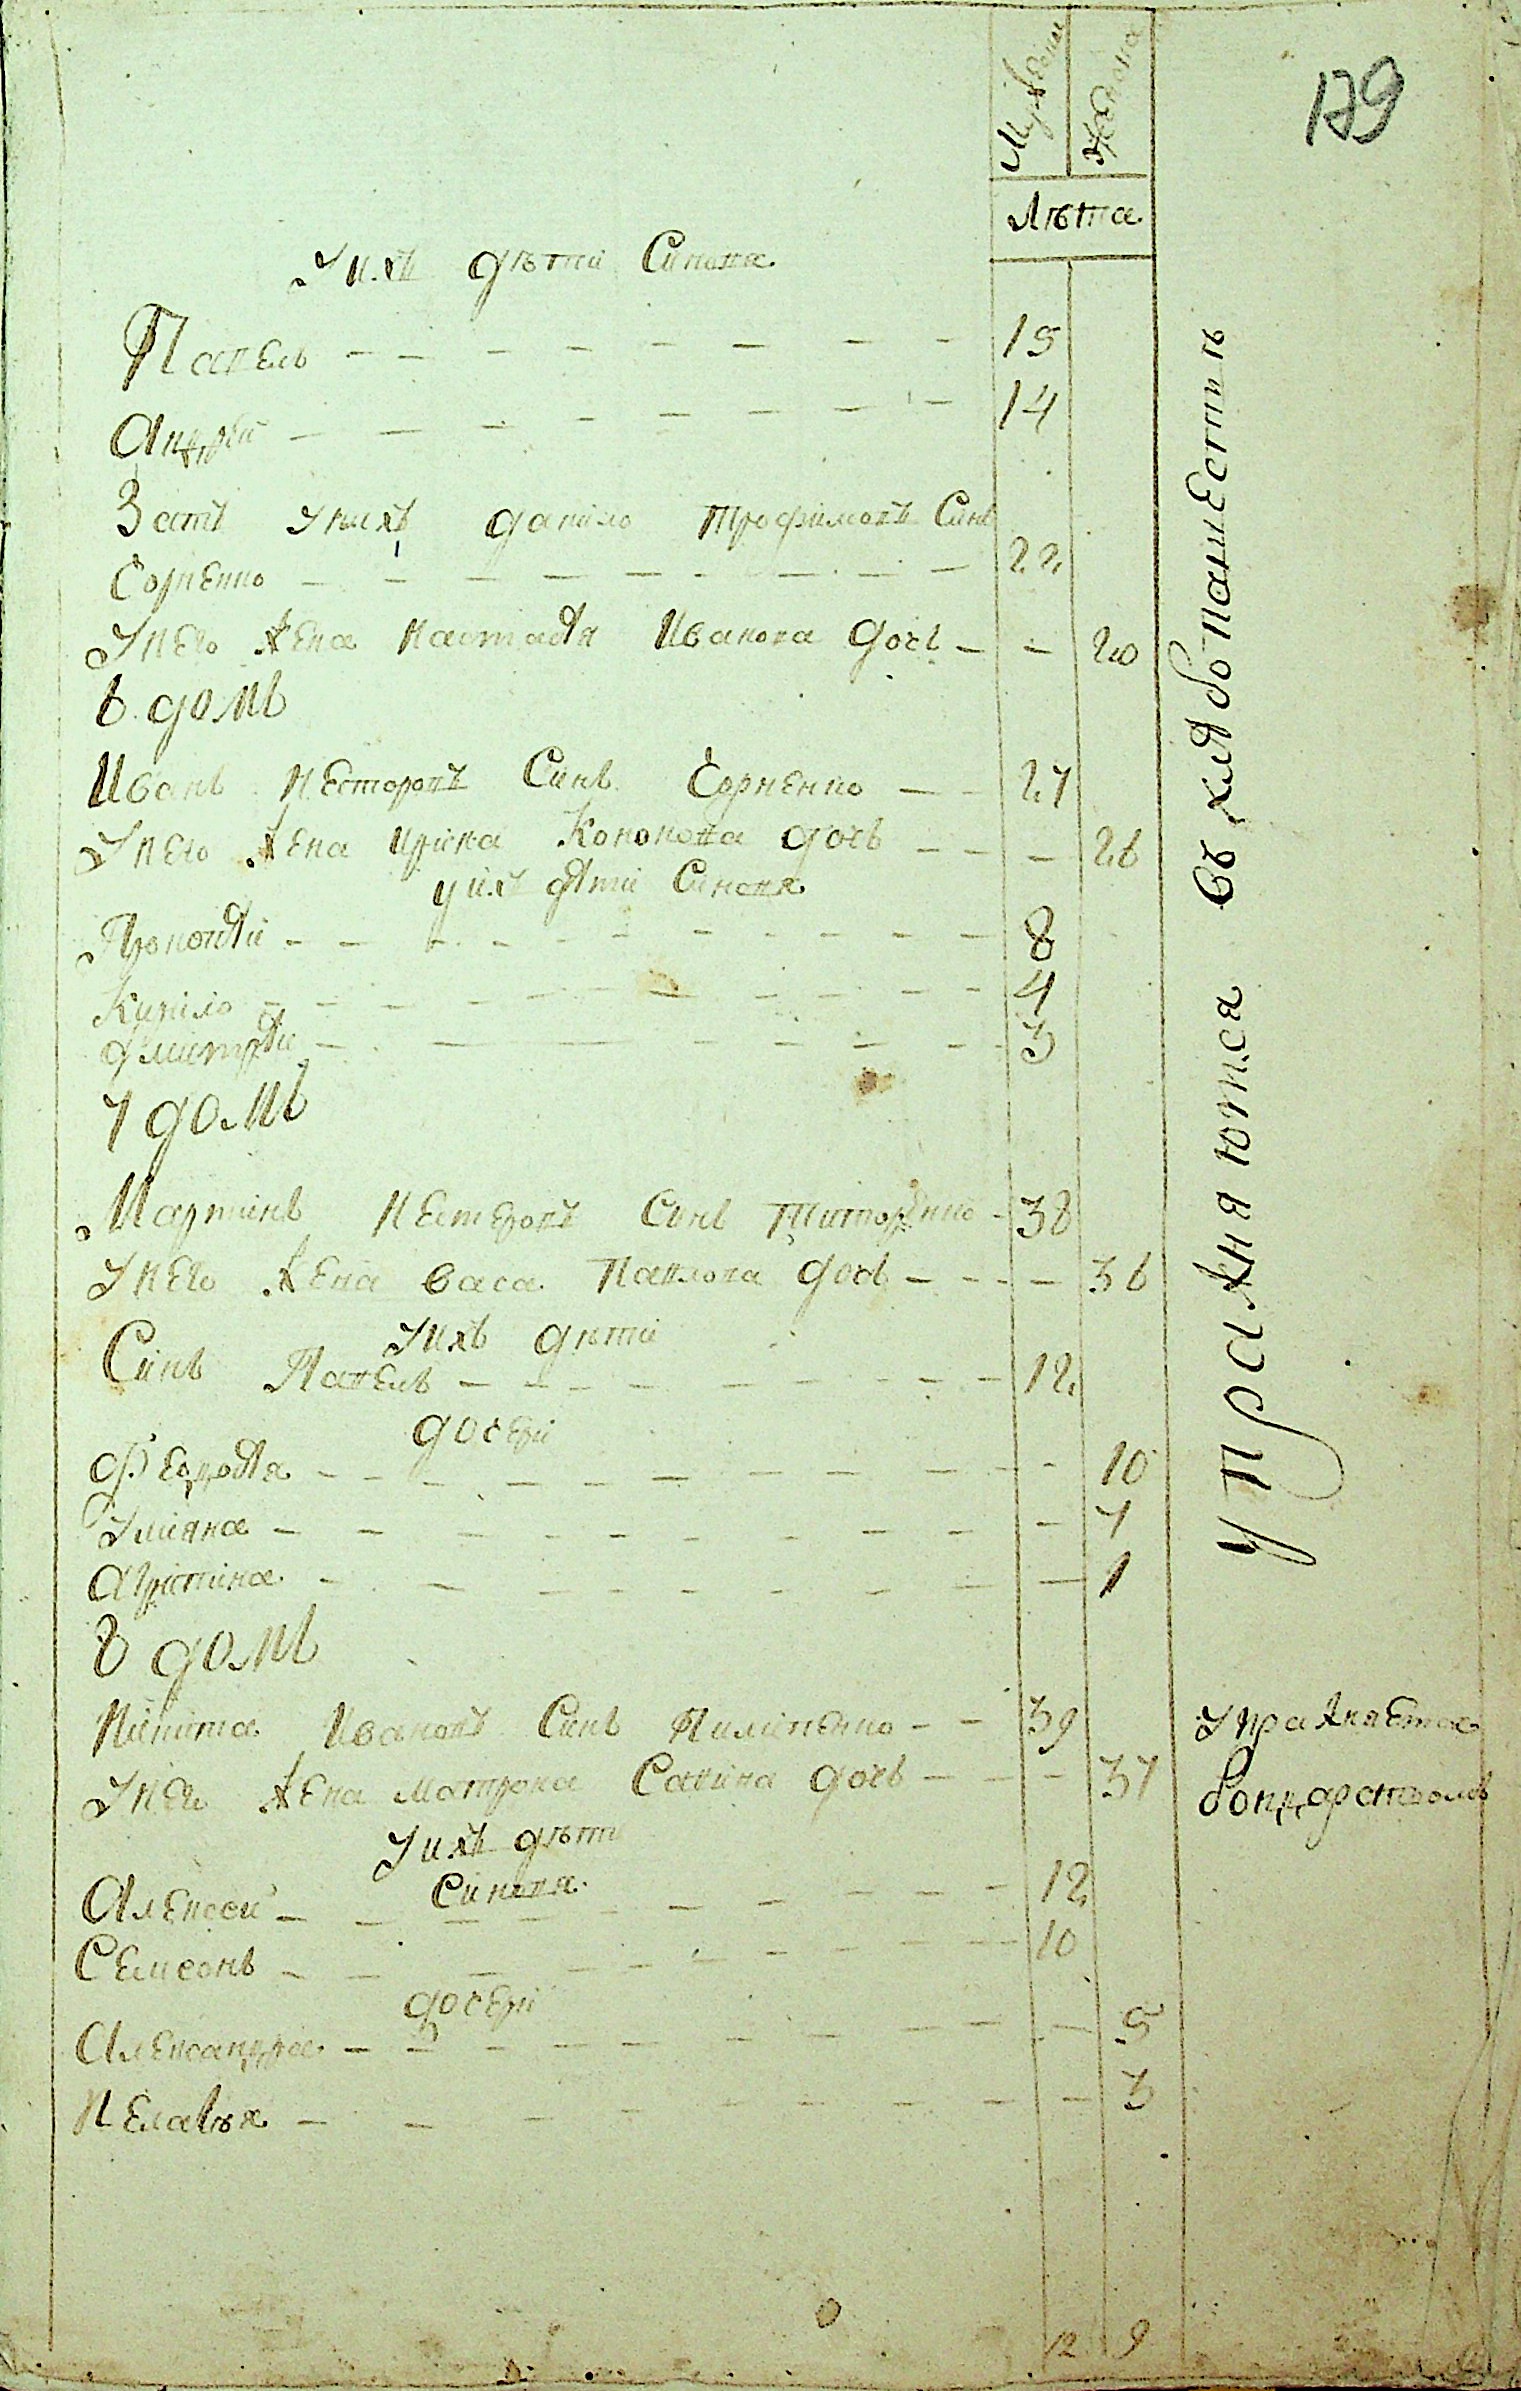 179
Мужеска
Женска
Лѣта
У ихъ дѣти Синова
Павелъ — — — — — — — — 15
Андрѣй — — — — — — — — 14
Зять у нихъ Данило Трофимовъ Синъ
Чорненко — — — — — — — — 22
У него жена Настасѣя Иванова дочь — — 20
6 домъ
Иванъ Несторовъ Синъ Чорненко — — 27
У него жена Ирина Кононова дочь — — — 26
у ихъ дѣти Синовя
Прокопѣй — — — — — — — — — 8
Кирило — — — — — — — — — 4
Дмитрѣй — — — — — — — — 3
7 домъ
Мартинъ Нестеровъ Синъ Титаренко — 38
У него жена Васа Павлова дочь — — — — 36
У ихъ дѣти
Синъ Павелъ — — — — — — — — 12
дочери
Федосѣя — — — — — — — — — — 10
Улияна — — — — — — — — — — 7
Агристина — — — — — — — — — 1
8 домъ
Никита Ивановъ Синъ Пилипенко — — 39
У него жена Матрона Савина дочь — — — 37
У ихъ дѣти
Синовя
Алексей — — — — — — — — 12
Семсонъ — — — — — — — — 10
дочери
Александра — — — — — — — — — 5
Пелагѣя — — — — — — — — — 3
12 9
упражняются въ хлѣбопашествѣ
Упражняется
бондарствомъ